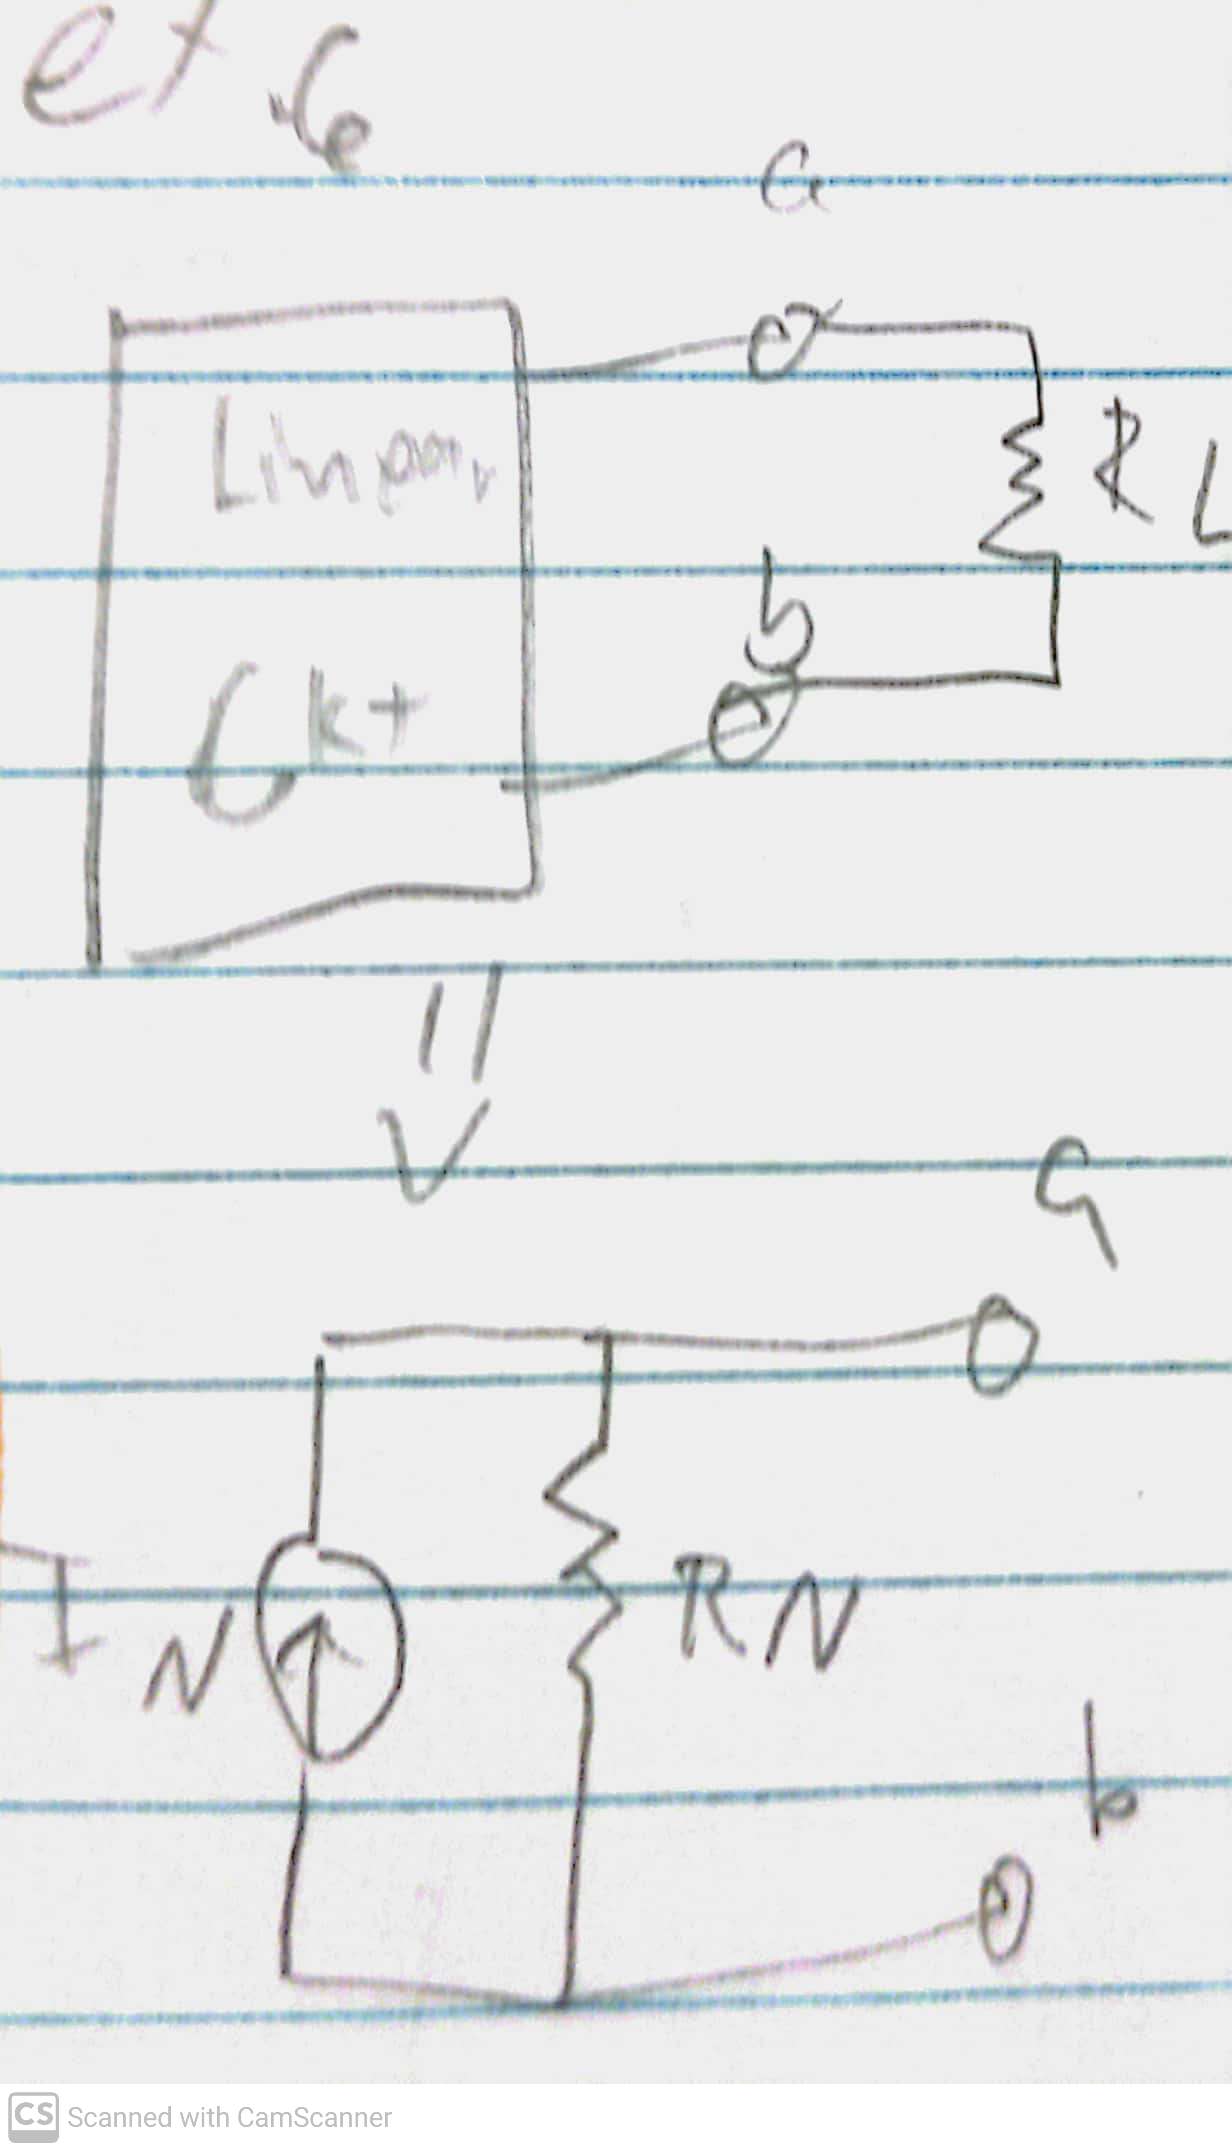 ex.6
a
Linear
RL
b
Ckt
a
IN
RN
b
CS Scanned with CamScanner